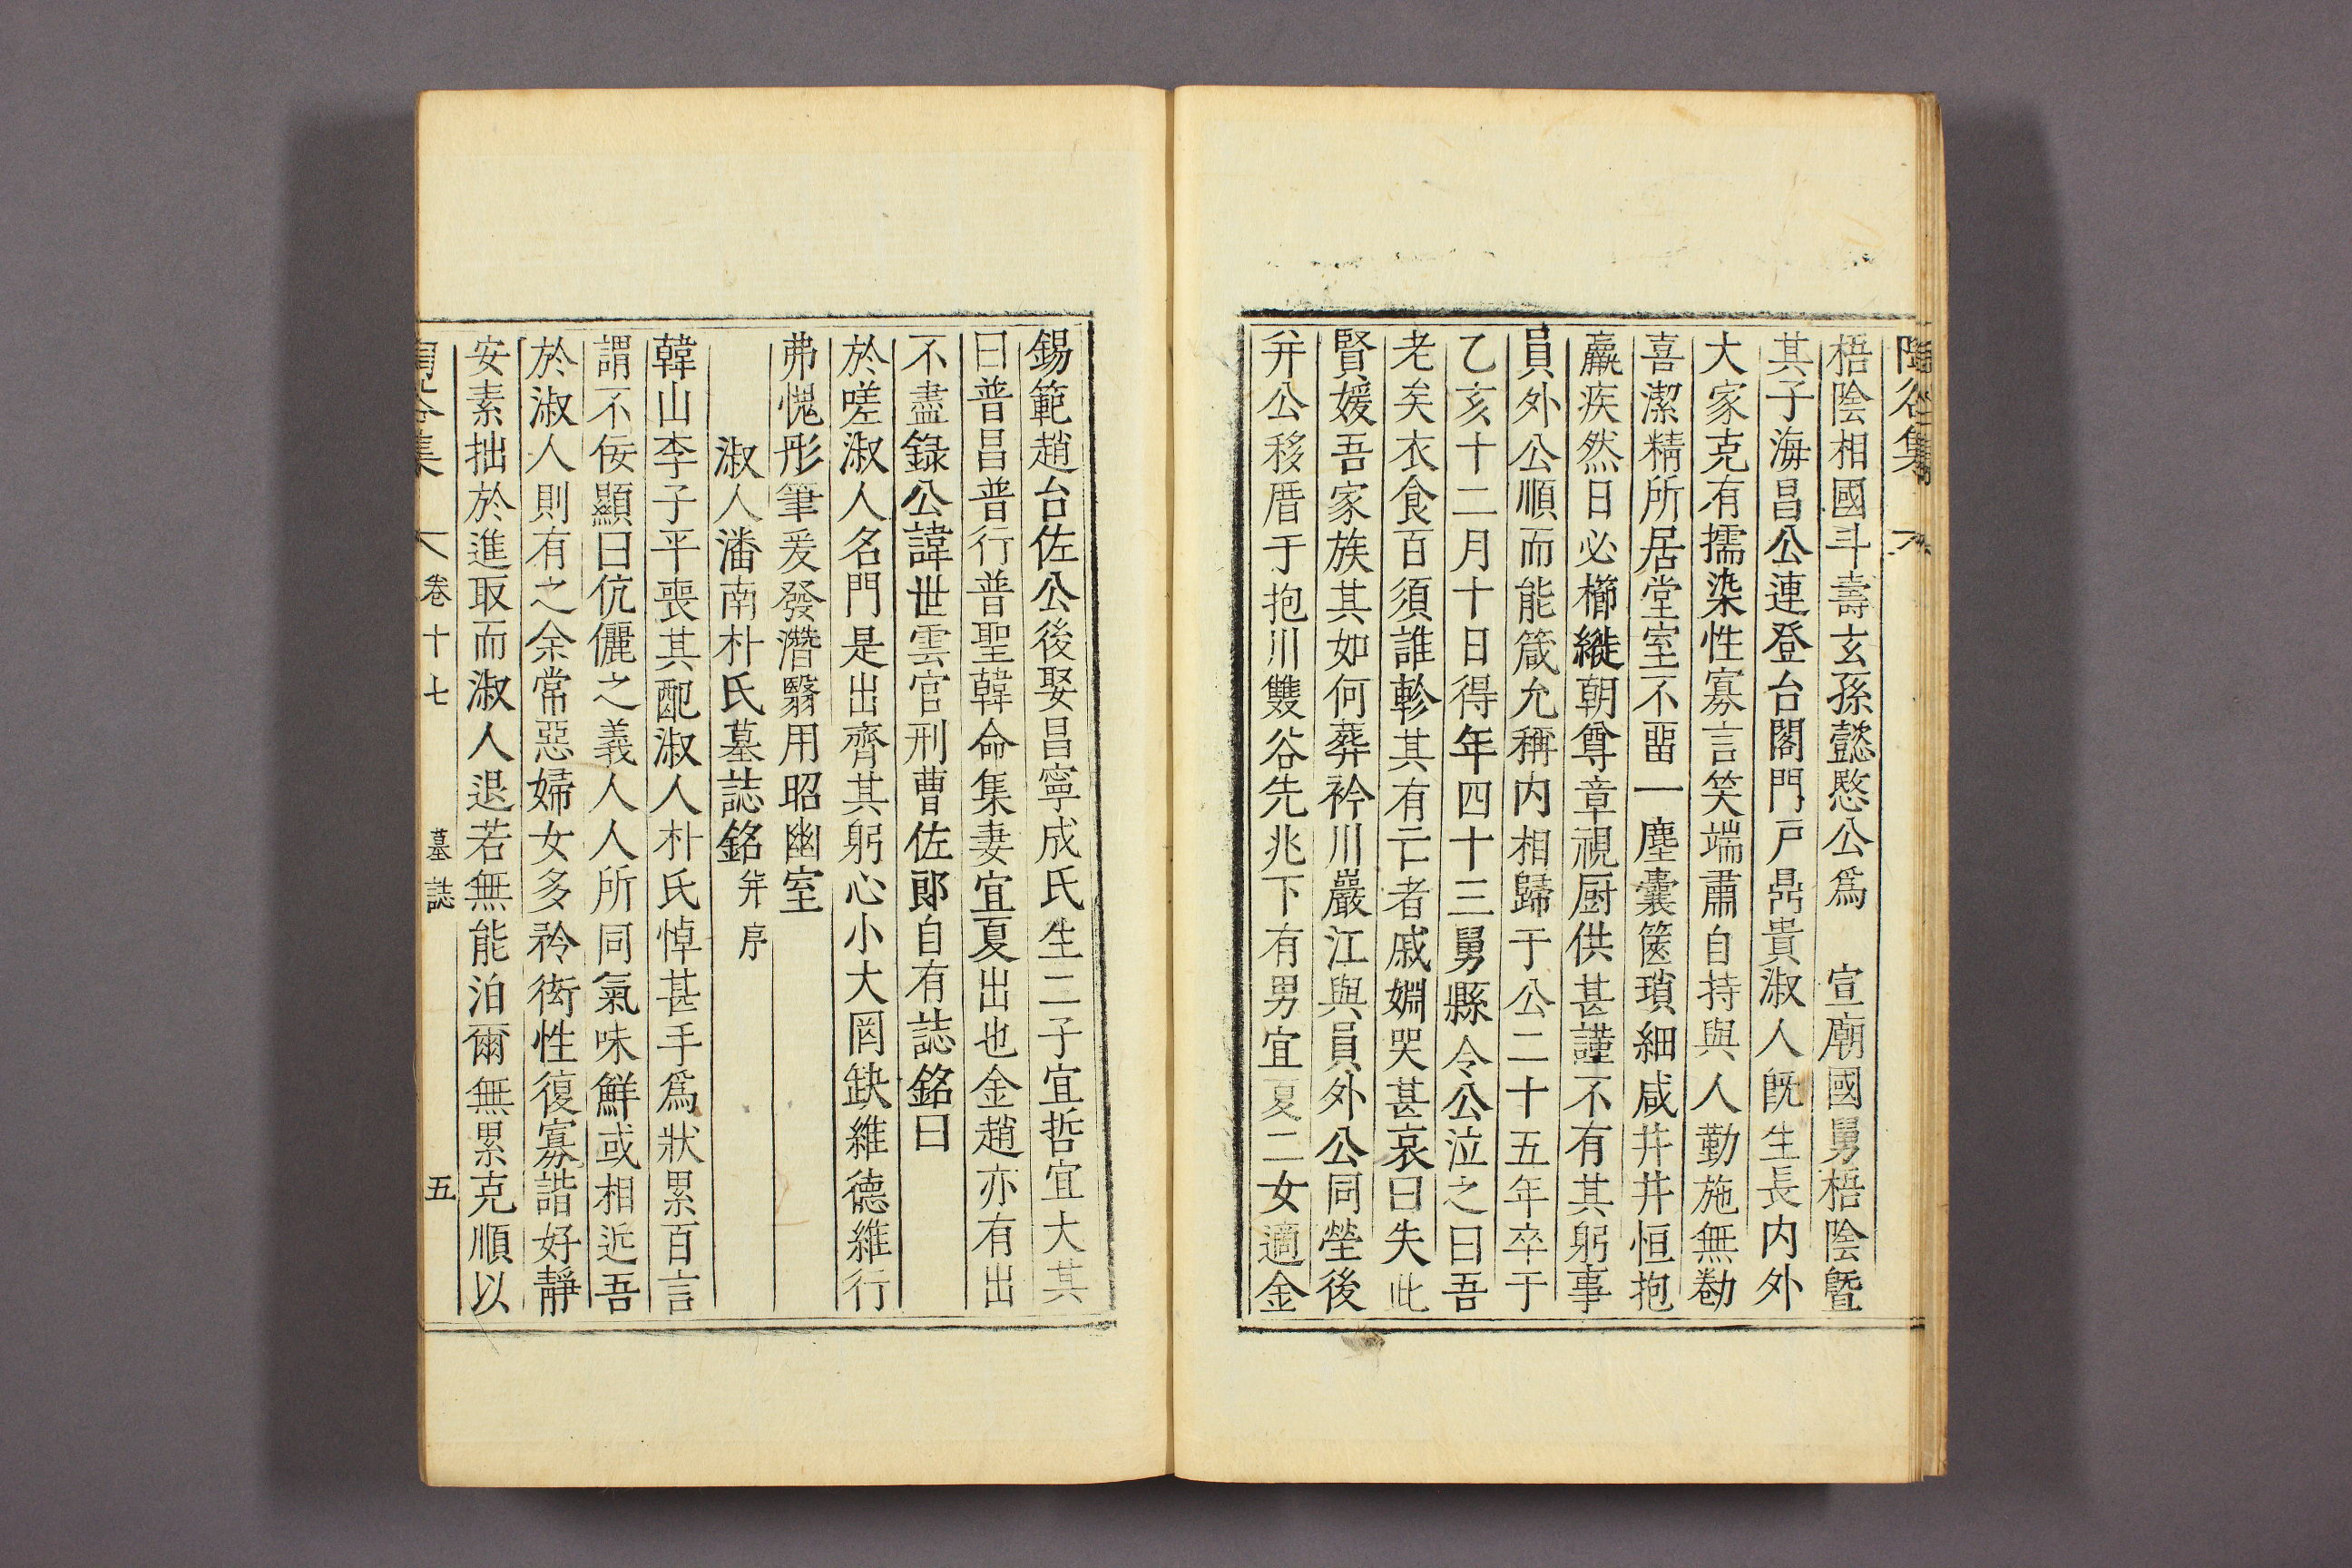 陶谷集
梧陰相國斗壽玄孫懿愍公爲　宣廟國舅梧陰曁
其子海昌公連登台閣門戶鼎貴淑人旣生長内外
大家克有擩染性寡言笑端肅自持與人勤施無勌
喜潔精所居堂室不畱一塵囊篋瑣細咸井井恒抱
羸疾然日必櫛縰朝尊章視厨供甚謹不有其躬事
員外公順而能箴允稱内相歸于公二十五年卒于
乙亥十二月十日得年四十三舅縣令公泣之曰吾
老矣衣食百須誰軫其有亡者戚婣哭甚哀曰失此
賢媛吾家族其如何葬衿川嚴江與員外公同塋後
幷公移厝于抱川雙谷先兆下有男宜夏二女適金
錫範趙台佐公後娶昌寧成氏生二子宜哲宜大其
曰普昌普行普聖韓命集妻宜夏出也金趙亦有出
不盡錄公諱世雲官刑曹佐郎自有誌銘曰
於嗟淑人名門是出齊其躬心小大罔缺維德維行
弗愧彤筆爰發潛翳用昭幽室
淑人潘南朴氏墓誌銘幷序
韓山李子平喪其配淑人朴氏悼甚手爲狀累百言
謂不佞顯曰伉儷之義人人所同氣味鮮或相近吾
於淑人則有之余常惡婦女多矜衒性復寡諧好靜
安素拙於進取而淑人退若無能泊爾無累克順以
陶谷集　卷十七　墓誌　五